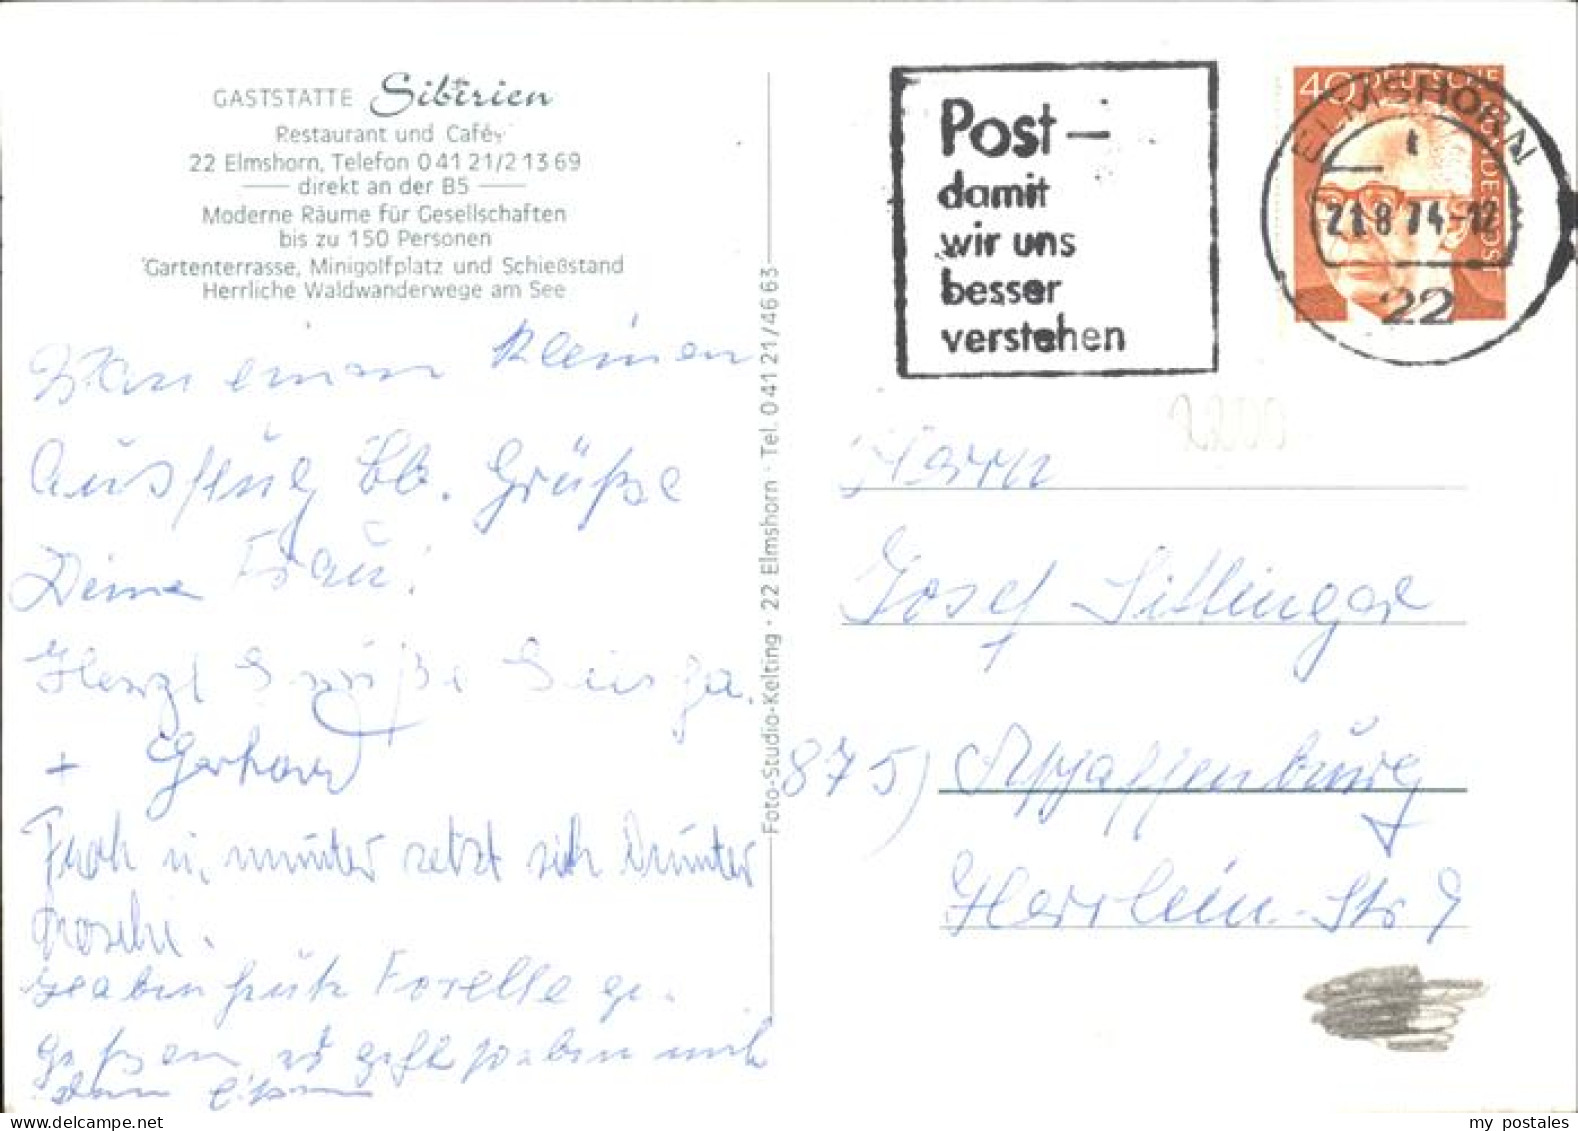 GASTSTÄTTE Sibirien
Restaurant und Café
22 Elmshorn, Telefon 0 41 21/2 13 69
direkt an der B5
Moderne Räume für Gesellschaften
bis zu 150 Personen
Gartenterrasse, Minigolfplatz und Schießstand
Herrliche Waldwanderwege am See
einen kleinen
Ausflug lb. Grüße
Deine Frau!
Herzl Grüße
+ Gerhard
Froh u. munter setzt sich drunter
haben Forelle ge-
gessen
Foto-Studio-Kelting · 22 Elmshorn · Tel. 0 41 21/46 63
Post –
damit
wir uns
besser
verstehen
40 DEUTSCHE BUNDESPOST
ELMSHORN
1
21.8.74-12
22
2200
Herrn
Josef Sittinger
875) Aschaffenburg
Herrlein-Str 9
my postales